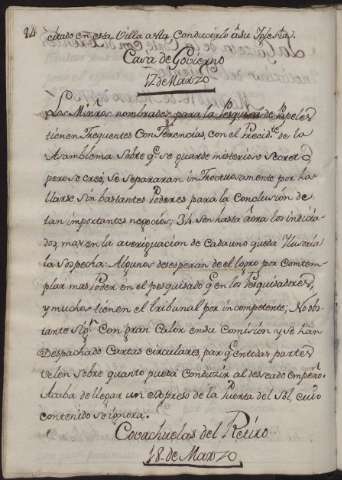 14 chado en esta Villa a sta Conducirlo a su Iglesia.
Casa de Govierno
17 de Marzo
Los Minros nombrados para la Pesquisa de Papeles
tienen frequentes Conferencias, con el Presidte de la
Asamblea Sobre qe se guarde misterioso Secreto
pero se Cree, se Separaran infructuosamente por ha
llarse sin bastantes Poderes para la Conclusión de
tan importantes negocios; 34 Son hasta áora los indicia
dos, mas en la averiguacion de Cada uno queda
la Sospecha: Algunos desesperan de el logro por Contem
plar mas Poder en el pesquisado qe en los Pesquisadores,
y muchos tienen el tribunal por incompetente; No obs
tante Sigen Con gran Calor en su Comision, y Se han
Despachado Cartas circulares para qe en todas partes
velen Sobre quanto pueda Conducir al deseado empeño.
Acaba de llegar un expreso de la Puerta del Sol, cuio
contenido se ignora.
Covachuelas del Retiro
18 de Marzo